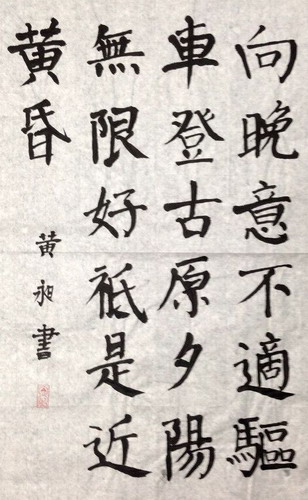 向晚意不適驅
車登古原夕陽
無限好祗是近
黄昏
黄昶書